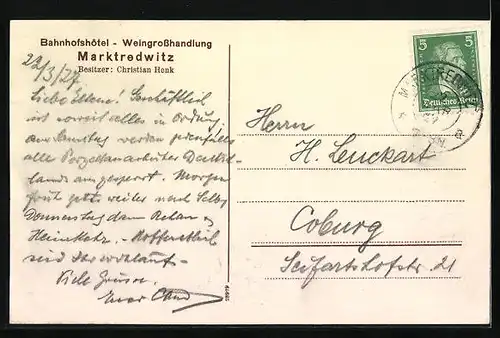 Bahnhofshôtel - Weingroßhandlung
Marktredwitz
Besitzer: Christian Henk
22/3/27
Liebe Eltern! Geschäftlich
ist soweit alles in Ordnung,
am Samstag werden jedenfalls
alle Porzellanarbeiter Deutsch-
lands ausgesperrt. Morgen
früh geht's weiter nach Selb,
Donnerstag dann
Heimkehr. - Hoffentlich
sind Ihr wohlauf. -
Viele Grüsse.
Euer
5 5
Deutsches Reich
Herrn
H. Leuckart
Coburg
Seifartshofstr. 21